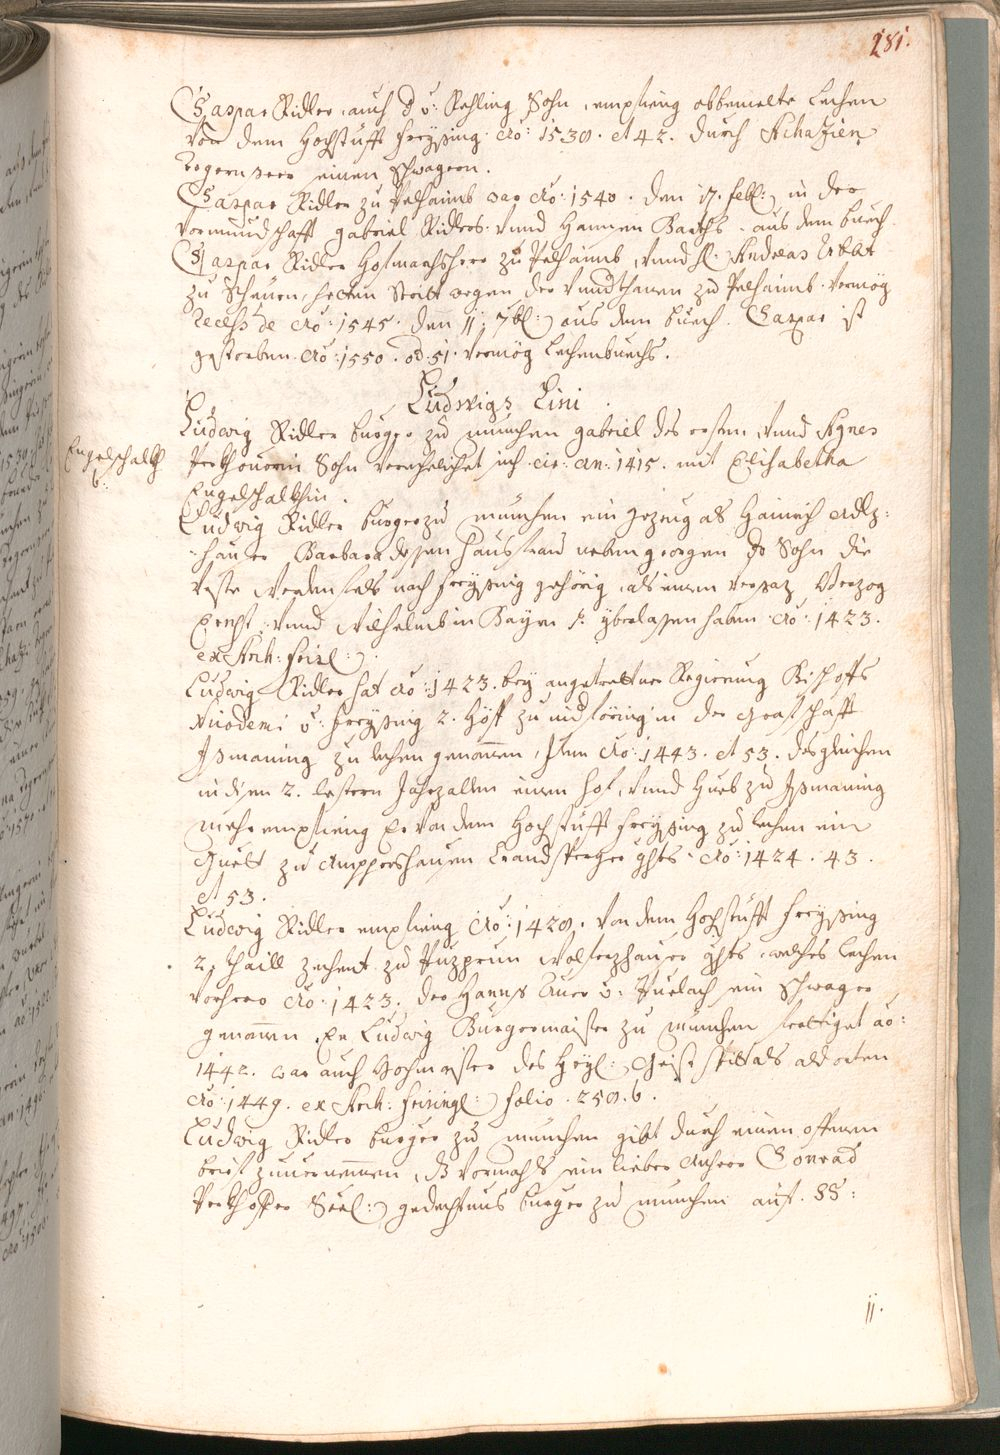 281.
Caspar Ridler, auch d v: Rehling Sohn, empfieng obbemelte Lechen
von dem Hochstüfft Freysing Ao: 1530. et 42. durch Achazien
seinen Schwagern.
Caspar Ridler zu Pelhaimb war Ao: 1540. den 17. febr: in der
Vormundschafft gabriel Ridlers vnnd Hannsen Barths. aus dem buech
Caspar Ridler Hofmarchsherr zu Pelhaimb, vnnd H. Andreas
zu hetten Stritt wegen der Vndthanen zu Pelhaimb. vermög
Recess de Ao: 1545. den 11. 7br: aus dem buech. Caspar ist
gestorben Ao: 1550. od. 51. vermög Lechenbuechs.
Ludwigs Lini.
Ludwig Ridler burger zu münchen gabriel des ersten, vnnd Agnes
Engelschalkh
6.
Sohn verehelichet sich cir: an: 1415. mit Elisabetha
Engelschalkhin.
Ludwig Ridler burger zu münchen ein gezeug als Hainrich Adlz:
hauser Barbara dessen Hausfrau neben georgen Ir Sohn die
Veste nach Freysing gehörig, als einen versaz Herzog
Ernst vnnd Wilhelmb in Bayrn p. yberlassen haben Ao: 1423.
ex Arch: Frisl:
Ludwig Ridler hat Ao: 1423. bey angetrettner Regierung Bischoffs
Nicodemi v: Freysing 2. Höff zu in der Graffschafft
Ysmaning zu lechen genomen, Item Ao: 1443. et 53. desgleichen
in disen 2. lestern Jahrzallen einen hof, vnnd Hueb zu Ysmaning
mehr empfieng Er von dem Hochstüfft Freysing zu lechen ein
Guett zu Amppershausen Crandsperger ghts. Ao: 1424. 43.
et 53.
Ludwig Ridler empfieng Ao: 1420. von dem Hochstüfft Freysing
2. thaill zechent zu Puzprun Wolfertzhauser ghts. welches lechen
vorhero Ao: 1423. der Hanns Auer v: Puelach sein Schwager
genomen. Er Ludwig Burgermaister zu münchen ao:
1442. war auch Hofmaister des Heyl: Geist Spittals aldorten
Ao: 1449. ex Arch: Frisingl: folio. 250. b.
Ludwig Ridler burger zu münchen gibt durch einen offenen
brief zuuernemmen, dz vormahls sein lieber Anherr Conrad
Seel: gedechtnus burger zu münchen auf. SS:
ii.